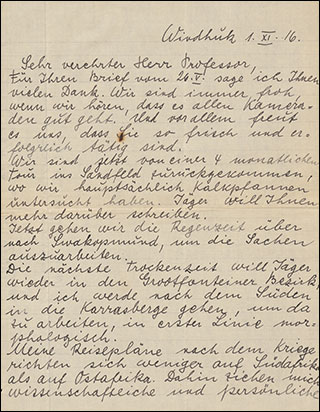 Windhuk 1. XI. 16.
Sehr verehrter Herr Professor,
Für Ihren Brief vom 26.V. sage ich Ihnen
vielen Dank. Wir sind immer froh,
wenn wir hören, dass es allen Kamera-
den gut geht. Und vor allem freut
es uns, dass Sie so frisch und er-
folgreich tätig sind.
Wir sind jetzt von einer 4 monatlichen
Tour ins Sandfeld zurückgekommen,
wo wir hauptsächlich Kalkpfannen
untersucht haben. Jäger will Ihnen
mehr darüber schreiben.
Jetzt gehen wir die Regenzeit über
nach Swakopmund, um die Sachen
auszuarbeiten.
Die nächste Trockenzeit will Jäger
wieder in den Grootfonteiner Bezirk,
und ich werde nach dem Süden
in die Karrasberge gehen, um da
zu arbeiten, in erster Linie mor-
phologisch.
Meine Reisepläne nach dem Kriege
richten sich weniger auf Südafrika
als auf Ostafrika. Dahin ziehen mich
wissenschaftliche und persönliche